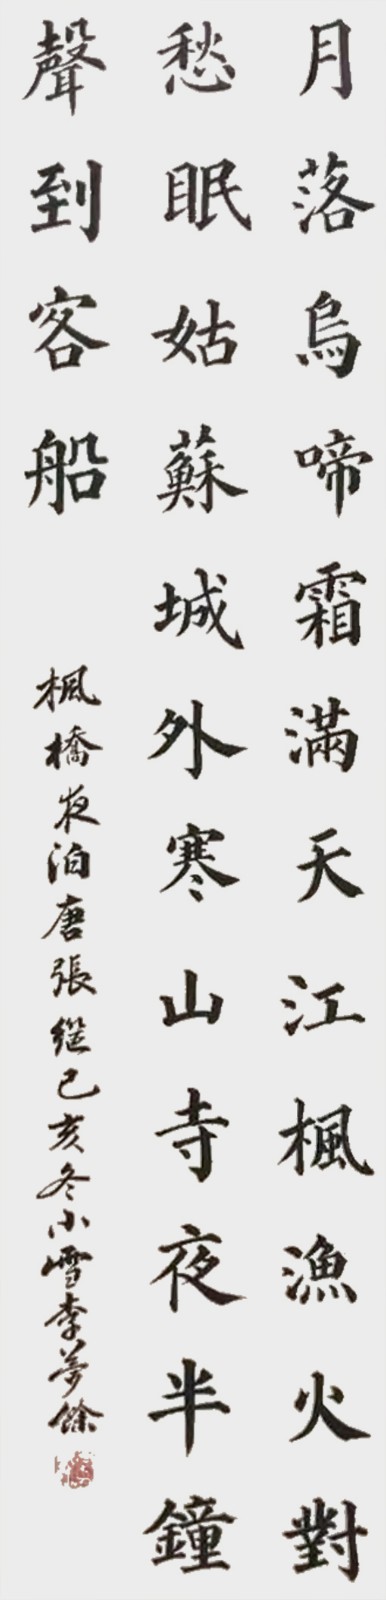 月落烏啼霜滿天江楓漁火對
愁眠姑蘇城外寒山寺夜半鐘
聲到客船
楓橋夜泊唐張継己亥冬小雪李夢餘